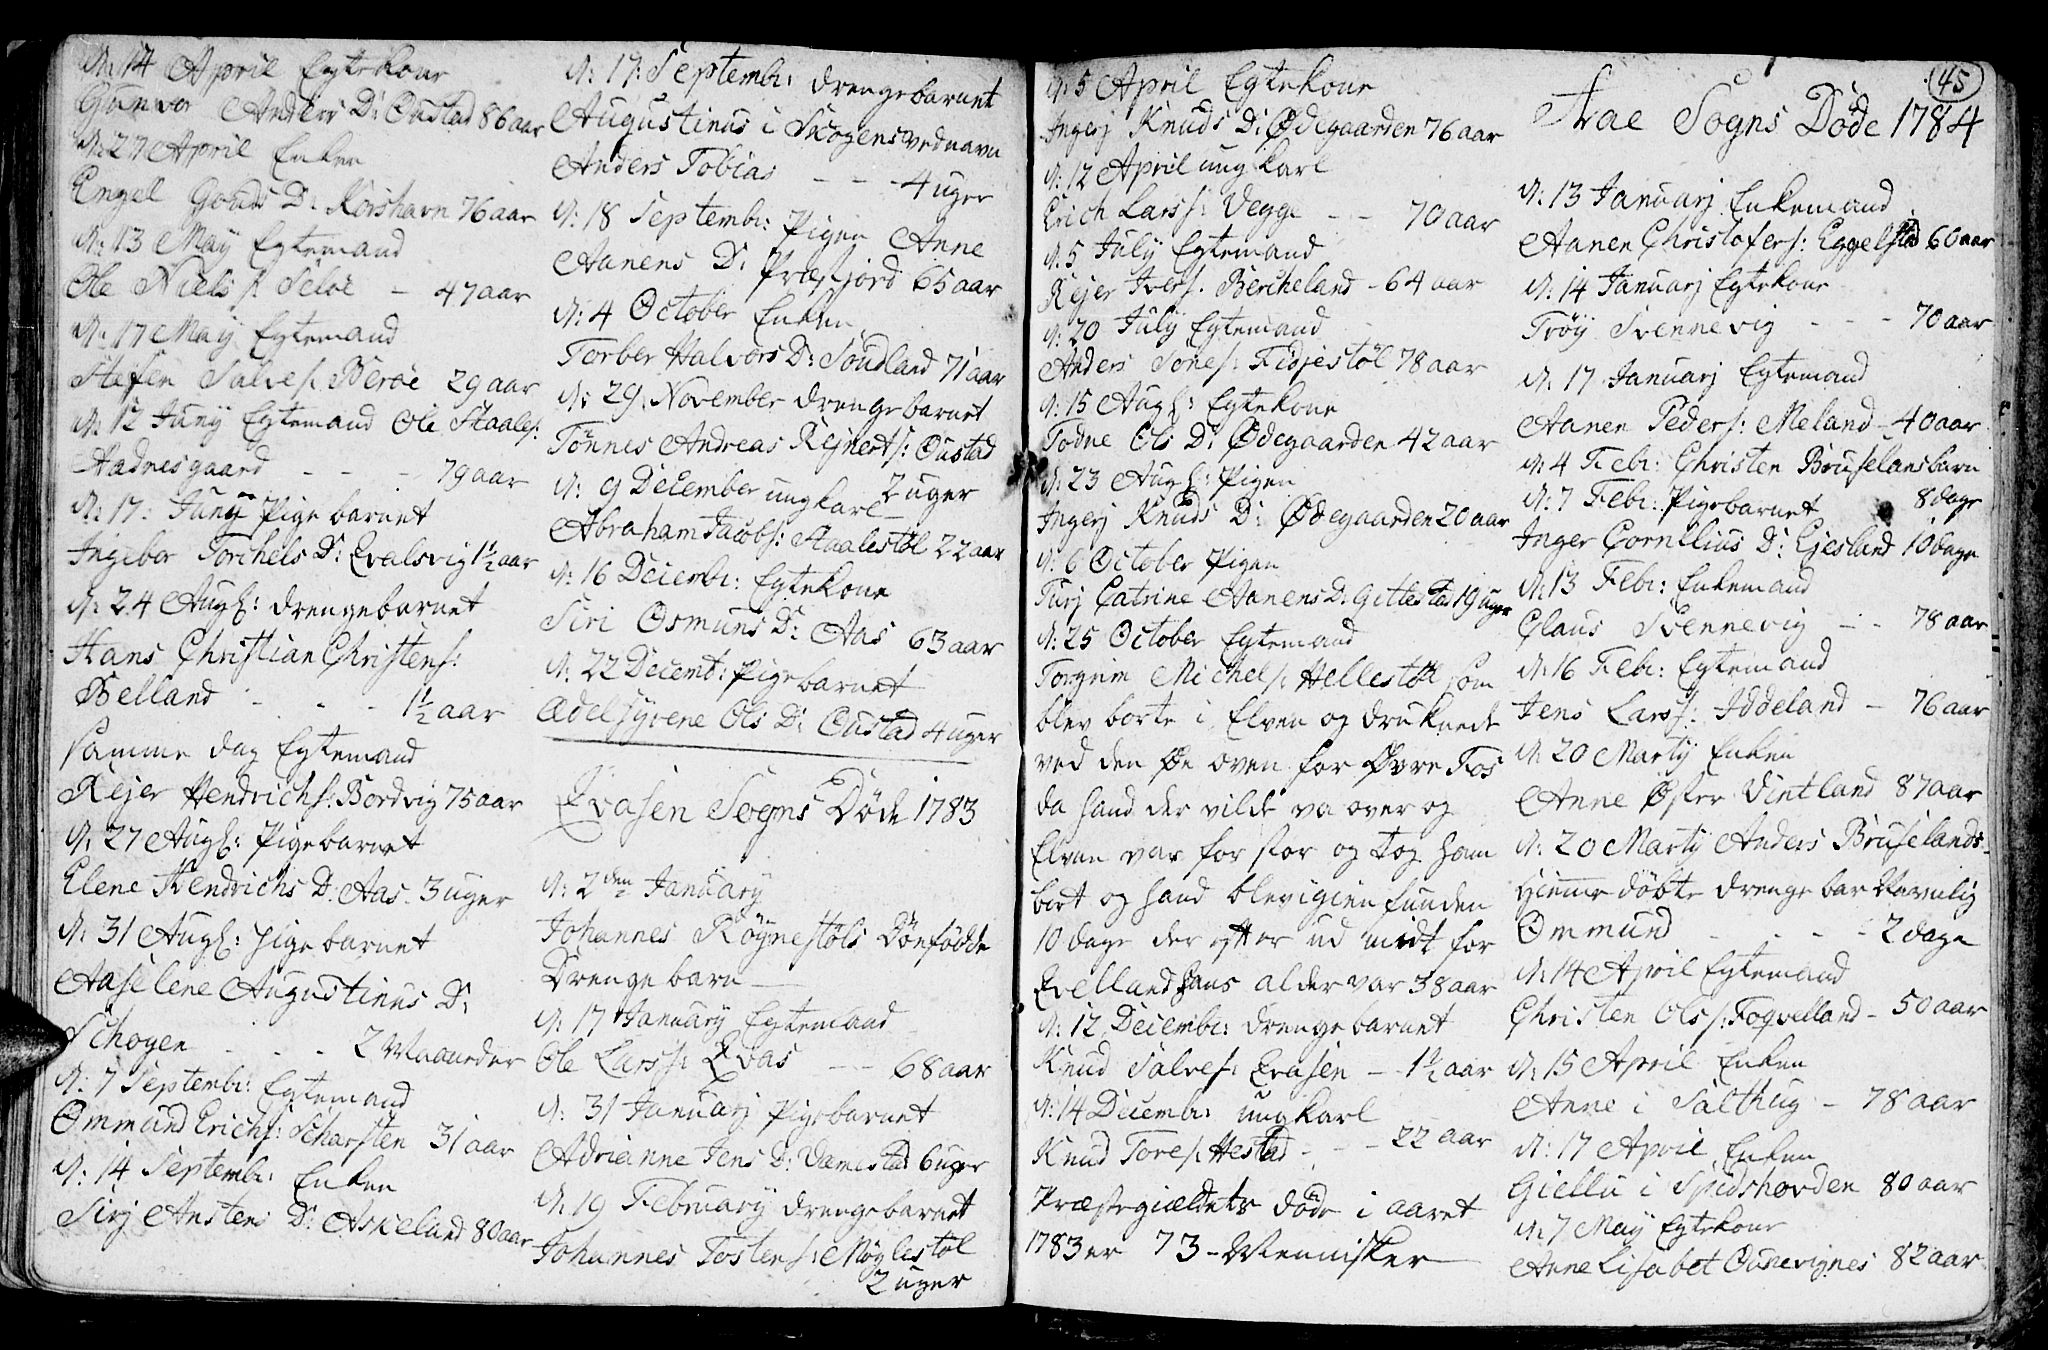 N: 14 April Egtekone
Gunvor Anders D: Oustad 86 aar
N: 27 April Enken
Engel Gouds D: Korshavn 76 aar
N: 13 May Egtemand
Ole Niels s: Seløe - 47 aar
N: 17 May Egtemand
Stefen Salves: Berøe 29 aar
N: 12 Juny Egtemand Ole Staales:
Aadnesgaard - - - 79 aar
N: 17: Juny Pige barnet
Ingebor Torchels D: Qvalsvig 1½ aar
N: 24 Augs: drengebarnet
Hans Christian Christens:
Belland - - - 1½ aar
samme dag Egtemand
Rejer Hendrichs: Bordvig 75 aar
N: 27 Augs: Pigebarnet
Elene Hendrichs D: Aas - 3 uger
N: 31 Augs: pige barnet
Aaselene Augustinus D:
Schogen - - - 2 Maaneder
N: 7 Septembr: Egtemand
Ommund Erichs: Scharsten 31 aar
N: 14 Septembr: Enken
Sirj Anstens D: Askeland 80 aar
N: 17: Septembr: drengebarnet
Augustinus i Skogens ved navn
Anders Tobias - - - 4 uger
N: 18 Septembr: Pigen Anne
Aanens D: Præsfjord 65 aar
N: 4 October Enken
Torber Halvors D: Soudland 71 aar
N: 29. November drengebarnet
Tønnes Andreas Rejnerts: Oustad
2 uger
N: 9 December ungkarl
Abraham Jacobs: Staalestøl 22 aar
N: 16 Decembr: Egtekone
Siri Osmuns D: Aas 63 aar
N: 22 Decemb: Pigebarnet
Ædelsyvene Ols D: Oustad 4 uger
Qvasen Sogns Døde 1783
N: 2den January
Johannes Røynestøls Dønfødde
Drengebarn
N: 17 January Egtemand
Ole Larss: Qvas - - 68 aar
N: 31 Januarj Pigebarnet
Adrianne Jens D: Vamestad 6 uger
N: 19 February drengebarnet
Johannes Tostens: Møglestøl
2 uger
N: 5 April Egtekone
Ingerj Knuds D: Ødegaarden 76 aar
N: 12 April ung karl
Erich Larss: Vegge - - 70 aar
N: 5 July Egtemand
Rejer Ivers. Bercheland - 64 aar
N: 20 July Egtemand
Anders Tones: Fidjestøl 78 aar
N: 15 Augs: Egtekone
Todne Ols D: Ødegaarden 42 aar
N: 23 Augs: Pigen
Ingerj Knuds D: Ødegaarden 20 aar
N: 6 October Pigen
Turj Catrine Aanens D: Gitlestad 19 uger
N: 25 October Egtemand
Torgrim Michels: Hellestøl som
blev borte i Elven og druknede
ved den Øe oven for Øvre Fos
da hand der vilde va over og
Elven var for stor og tog ham
bort og hand blev igien funden
10 dage der efter ud midt for
Qvelland hans alder var 38 aar
N: 12 Decembr: drengebarnet
Knud Salves: Qvasen - 1½ aar
N: 14 Decembr: ungkarl
Knud Tores: Hestad - - 22 aar
Præstegiældets døde i aaret
1783 er 73 - Mennisker
45
Aae Sogns Døde 1784
N: 13 Januarj Enkemand
Aanen Christofers: Eggelstad 60 aar
N: 14 Januarj Egtekone
Trøy Svennevig - - - 70 aar
N: 17 Januarj Egtemand
Aanen Peders: Meland - 40 aar
N: 4 Febr: Christen Bruselans barn
8 dage
N: 7 Febr: Pigebarnet
Inger Cornelius D: Ejesland 10 dage
N: 13 Febr: Enkemand
Claus Svennevig - - 78 aar
N: 16 Febr: Egtemand
Jens Larss: Iddeland - 76 aar
N: 20 Marty Enken
Anne Øster Vintland 87 aar
N: 20 Marty Anders Bruselands
Hiemme døbte drenge bar Navnlig
Ommund - - - - 2 dage
N: 14 April Egtemand
Christen Ols s: Foqvelland - 50 aar
N: 15 April Enken
Anne i Salthug - 78 aar
N: 17 April Enken
Giellu i Spedshovden 80 aar
N: 7 May Egtekone
Anne Lisabet Ounevignes 82 aar